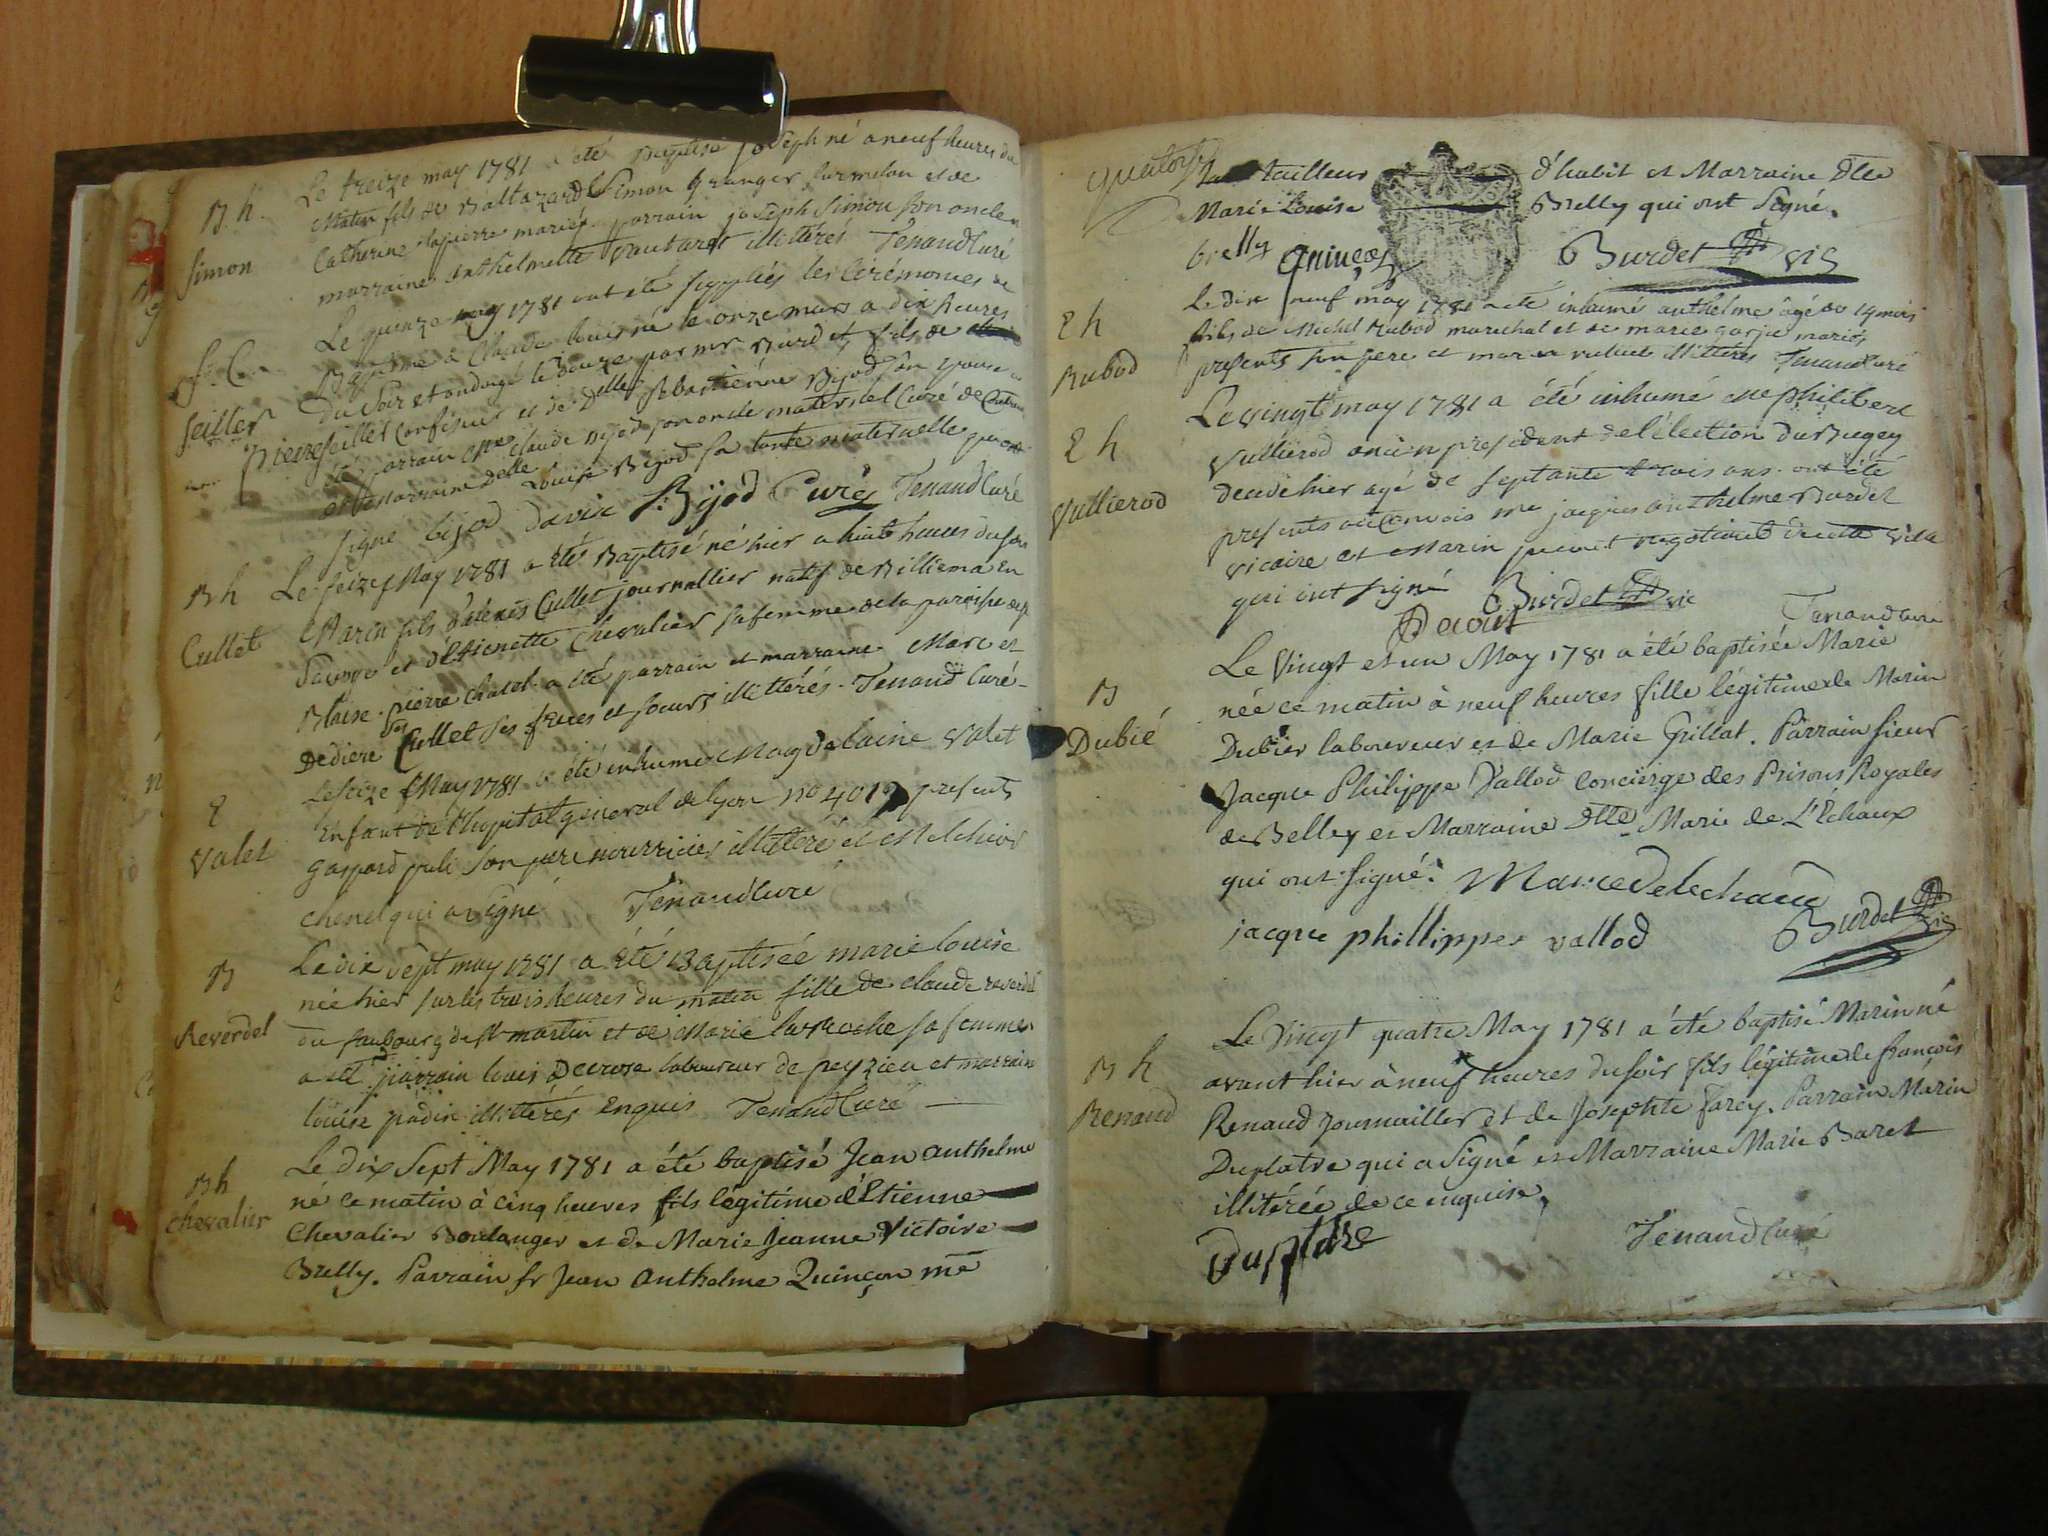 B. h.
Simon
Le treize may 1781 a été Baptisé joseph né a neuf heures du
matin fils de Baltazard Simon granger parmelan et de
Catherine lapierre mariés parrain joseph Simon son oncle
marraine Anthelmette illitérés Tenand Curé
S. C.
Seiller
Le quinze may 1781 ont été supplées les Cérémonies de
Baptême a Claude louis né le onze mars a dix heures
du soir et ondoyé le douze par mr Burdet fils de
pierre Seiller confiseur et de Delle Sebastienne Bijod son épouse a
été parrain Claude Bijod son oncle maternel Curé de
et la marraine Delle Louise Bijod sa tante maternelle qui ont
signé bijod davin Bijod Curé Tenand Curé
B h
Cullet
Le seize May 1781 a été Baptisé né hier a huit heures du soir
Marin fils Cullet journallier natif de Billiema En
Savoye et d'Etienette Chevalier sa femme de la paroisse de st
Blaise. pierre chatel a été parrain et marraine Marc et
Dediere Cullet ses freres et soeurs illittérés. Tenand Curé
E
Valet
Le seize May 1781 a été inhumé Magdelaine Valet
Enfant de l'hopital general de lyon no 4019 presents
gaspard juli son pere nourricier illitteré et Melchior
chenel qui a signé Tenand Curé
B
Reverdel
Le dix sept may 1781 a été Baptisée marie louise
née hier sur les trois heures du matin fille de claude reverdel
du faubourg de st martin et de Marie laroche sa femme
a été parrain louis Decrose laboureur de peyzieu et marraine
louise padin illittérés Enquis Tenand Curé
B h
Chevalier
Le Dix Sept May 1781 a été baptisé Jean Anthelme
né ce matin à cinq heures fils légitime d'Etienne
Chevalier Boulanger et de Marie Jeanne Victoire
Brelly. Parrain sr Jean Anthelme Quinçon me
quatorze
tailleur d'habit et Marraine Dlle
Marie Louise Brelly qui ont signé.
brelly Quinçon Burdet vic
E h
Rubod
Le dix neuf may 1781 a été inhumé anthelme âgé de 14 mois
fils de Michel Rubod marechal et de marie gorju mariés
presents son pere et illittérés Tenand Curé
E h
Vullierod
Le vingt may 1781 a été inhumé me philibert
Vullierod ancien president de l'élection du Bugey
decedé hier agé de septante trois ans. ont été
presents au Convois Mre jacques anthelme Burdet
vicaire et Marin negotiant de cette ville
qui ont signé Burdet vic
Tenand Curé
B
Dubié
Le Vingt et un May 1781 a été baptisée Marie
née ce matin à neuf heures fille légitime de Marin
Dubier laboureur et de Marie Grillat. Parrain sieur
Jacque Philippe Vallod Concierge des Prisons Royales
de Belley et Marraine Dlle Marie de L'Echaux
qui ont signé. Marie Delechaux
jacque phillippes vallod Burdet vic
B h
Renaud
Le Vingt quatre May 1781 a été baptisé Marin né
avant hier à neuf heures du soir fils légitime de françois
Renaud journailler et de Josephte Farcy. Parrain Marin
Duplatre qui a signé et Marraine Marie Baret
illitérée de ce enquise.
Duplatre Tenand Curé